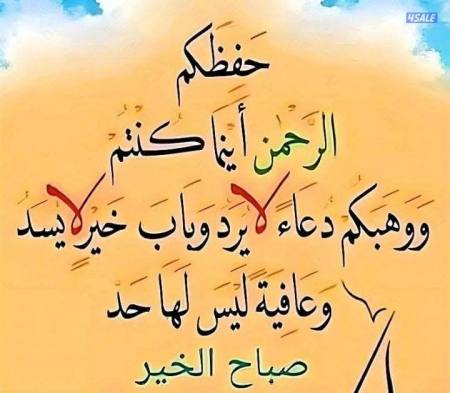 4SALE
حَفِظَكم
الرَحْمن أَينَما كُنْتُمْ
وَوَهَبَكُمْ دُعَاءً لا يُرَد وَبَابَ خَيْرٍ لا يُسَدُ
وَعَافِيَةً لَيْسَ لَهَا حَدْ
صباح الخير